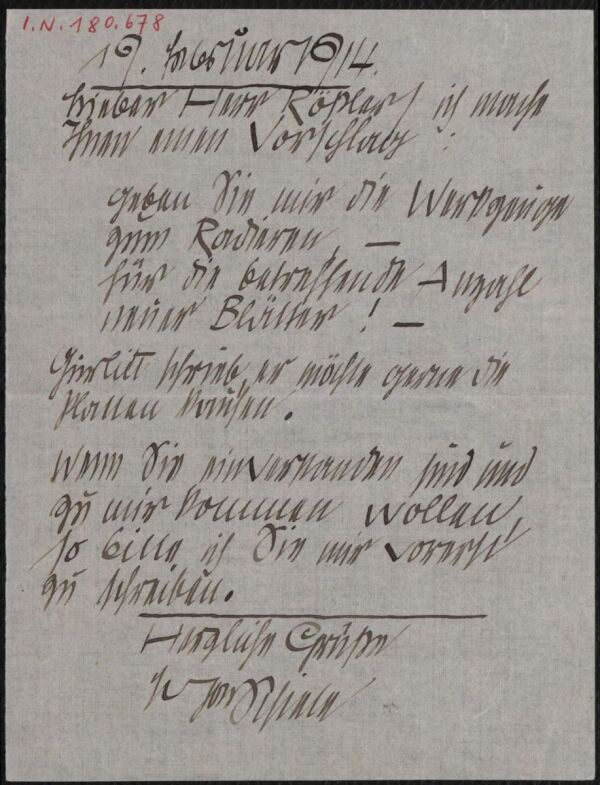 I.N. 180.678
19. Februar 1914.
Lieber Herr Rößler, ich mache
Ihnen einen Vorschlag :
geben Sie mir die Werkzeuge
zum Radieren, —
für die betreffende Anzahl
neuer Blätter ! —
Gurlitt schrieb, er möchte gerne die
Platten kaufen.
Wenn Sie einverstanden sind und
zu mir kommen wollen,
so bitte ich Sie mir vorerst
zu schreiben.
Herzliche Grüße
Egon Schiele